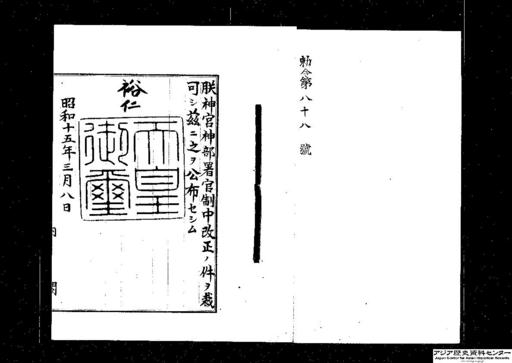 勅令第八十八號
朕神宮神部署官制中改正ノ件ヲ裁
可シ玆ニ之ヲ公布セシム
裕仁
天皇
御璽
昭和十五年三月八日
内閣
アジア歴史資料センター
Japan Center for Asian Historical Records